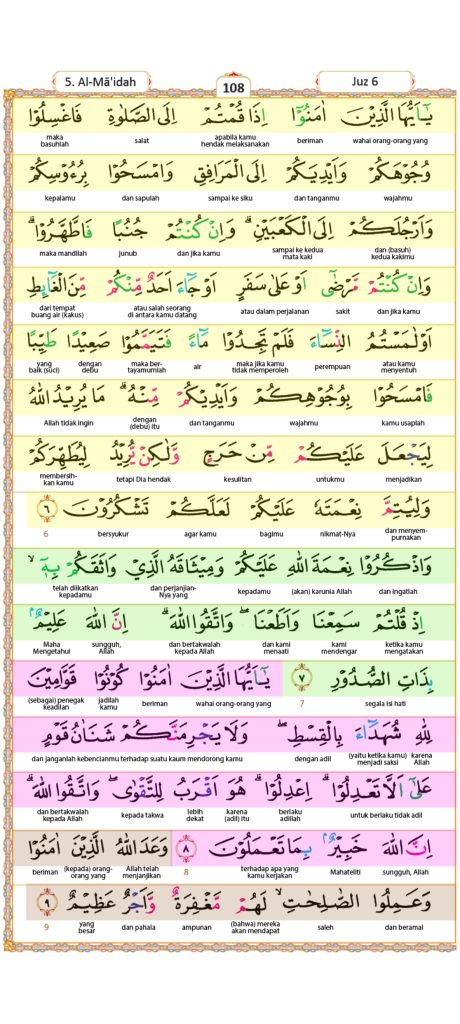 5. Al-Mā'idah 108 Juz 6
يٰٓاَيُّهَا الَّذِيْنَ اٰمَنُوْٓا اِذَا قُمْتُمْ اِلَى الصَّلٰوةِ فَاغْسِلُوْا
wahai orang-orang yang beriman apabila kamu hendak melaksanakan salat maka basuhlah
وُجُوْهَكُمْ وَاَيْدِيَكُمْ اِلَى الْمَرَافِقِ وَامْسَحُوْا بِرُءُوْسِكُمْ
wajahmu dan tanganmu sampai ke siku dan sapulah kepalamu
وَاَرْجُلَكُمْ اِلَى الْكَعْبَيْنِۗ وَاِنْ كُنْتُمْ جُنُبًا فَاطَّهَّرُوْاۗ
dan (basuh) kedua kakimu sampai ke kedua mata kaki dan jika kamu junub maka mandilah
وَاِنْ كُنْتُمْ مَّرْضٰٓى اَوْ عَلٰى سَفَرٍ اَوْ جَاۤءَ اَحَدٌ مِّنْكُمْ مِّنَ الْغَاۤىِٕطِ
dan jika kamu sakit atau dalam perjalanan atau salah seorang di antara kamu datang dari tempat buang air (kakus)
اَوْ لٰمَسْتُمُ النِّسَاۤءَ فَلَمْ تَجِدُوْا مَاۤءً فَتَيَمَّمُوْا صَعِيْدًا طَيِّبًا
atau kamu menyentuh perempuan maka jika kamu tidak memperoleh air maka ber-tayamumlah dengan debu yang baik (suci)
فَامْسَحُوْا بِوُجُوْهِكُمْ وَاَيْدِيْكُمْ مِّنْهُۗ مَا يُرِيْدُ اللّٰهُ
kamu usaplah wajahmu dan tanganmu dengan (debu) itu Allah tidak ingin
لِيَجْعَلَ عَلَيْكُمْ مِّنْ حَرَجٍ وَّلٰكِنْ يُّرِيْدُ لِيُطَهِّرَكُمْ
menjadikan untukmu kesulitan tetapi Dia hendak membersih-kan kamu
وَلِيُتِمَّ نِعْمَتَهٗ عَلَيْكُمْ لَعَلَّكُمْ تَشْكُرُوْنَ ٦
dan menyem-purnakan nikmat-Nya bagimu agar kamu bersyukur 6
وَاذْكُرُوْا نِعْمَةَ اللّٰهِ عَلَيْكُمْ وَمِيْثَاقَهُ الَّذِيْ وَاثَقَكُمْ بِهٖٓۙ
dan ingatlah (akan) karunia Allah kepadamu dan perjanjian-Nya yang telah diikatkan kepadamu
اِذْ قُلْتُمْ سَمِعْنَا وَاَطَعْنَاۖ وَاتَّقُوا اللّٰهَۗ اِنَّ اللّٰهَ عَلِيْمٌۢ
ketika kamu mengatakan kami mendengar dan kami menaati dan bertakwalah kepada Allah sungguh, Allah Maha Mengetahui
بِذَاتِ الصُّدُوْرِ ٧ يٰٓاَيُّهَا الَّذِيْنَ اٰمَنُوْا كُوْنُوْا قَوَّامِيْنَ
segala isi hati 7 wahai orang-orang yang beriman jadilah kamu (sebagai) penegak keadilan
لِلّٰهِ شُهَدَاۤءَ بِالْقِسْطِۖ وَلَا يَجْرِمَنَّكُمْ شَنَاٰنُ قَوْمٍ
karena Allah (yaitu ketika kamu) menjadi saksi dengan adil dan janganlah kebencianmu terhadap suatu kaum mendorong kamu
عَلٰٓى اَلَّا تَعْدِلُوْاۗ اِعْدِلُوْاۗ هُوَ اَقْرَبُ لِلتَّقْوٰىۖ وَاتَّقُوا اللّٰهَۗ
untuk berlaku tidak adil berlaku adillah karena (adil) itu lebih dekat kepada takwa dan bertakwalah kepada Allah
اِنَّ اللّٰهَ خَبِيْرٌۢ بِمَا تَعْمَلُوْنَ ٨ وَعَدَ اللّٰهُ الَّذِيْنَ اٰمَنُوْا
sungguh, Allah Mahateliti terhadap apa yang kamu kerjakan 8 Allah telah menjanjikan (kepada) orang-orang yang beriman
وَعَمِلُوا الصّٰلِحٰتِۙ لَهُمْ مَّغْفِرَةٌ وَّاَجْرٌ عَظِيْمٌ ٩
dan beramal saleh (bahwa) mereka akan mendapat ampunan dan pahala yang besar 9